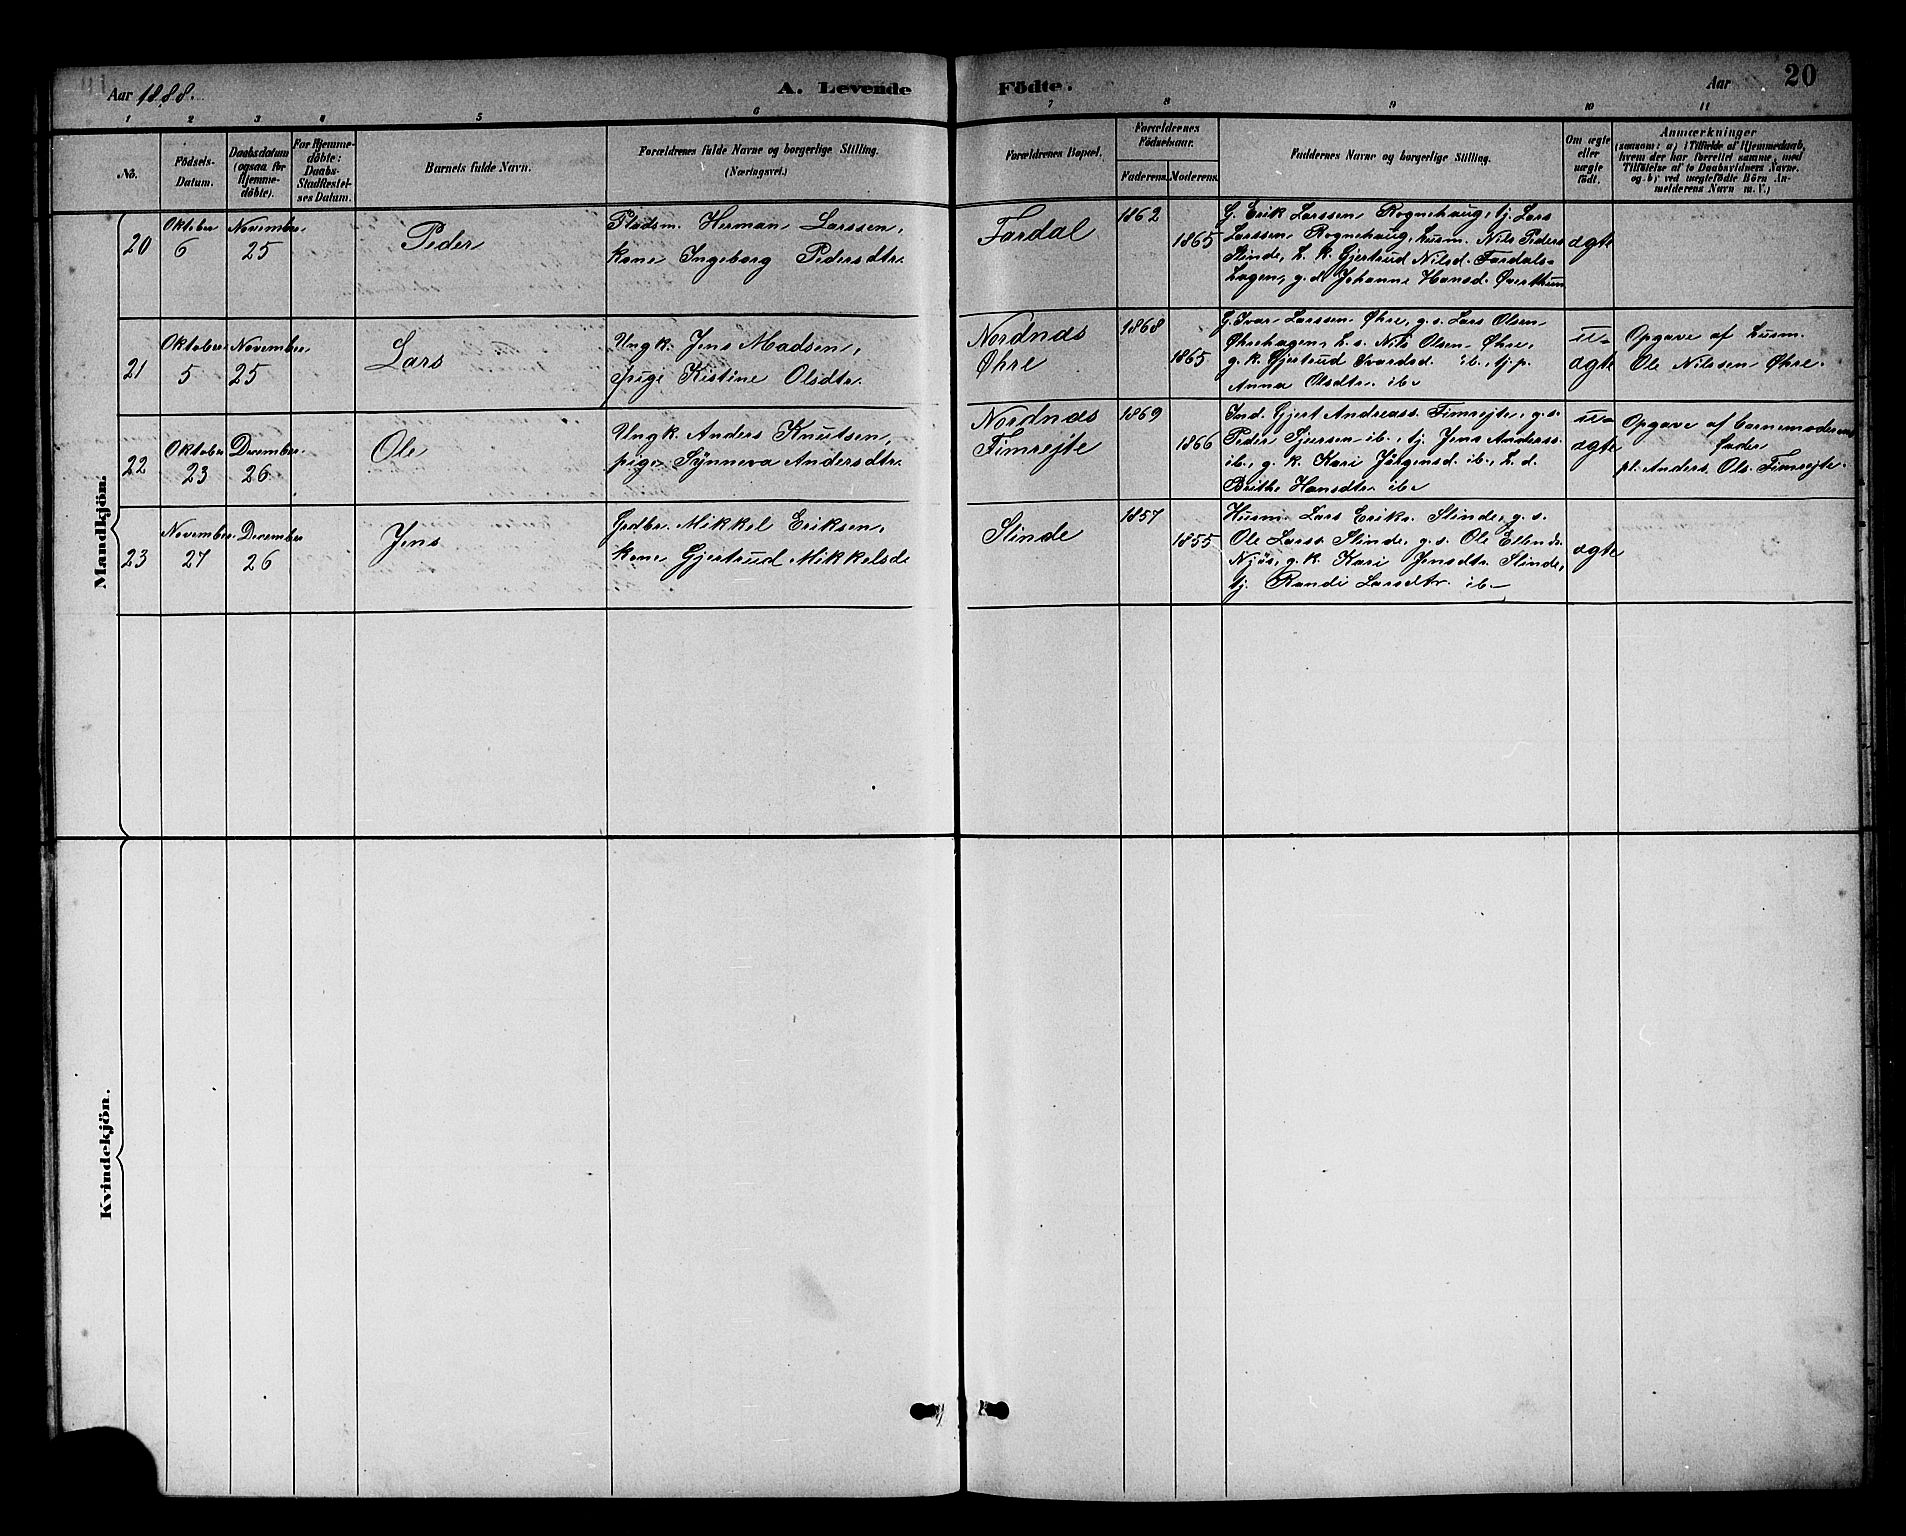 Aar 1888.
A. Levende Födte.
Aar
20
1 2 3 4 5 6 7 8 9 10 11
No.
Födsels-
Datum.
Daabsdatum
(ogsaa for
Hjemme-
döbte).
For Hjemme-
döbte:
Daabs-
Stadfæstel-
ses Datum.
Barnets fulde Navn.
Forældrenes fulde Navne og borgerlige Stilling.
(Næringsvei.)
Forældrenes Bopæl.
Forældrenes
Födselsaar.
Faderens. Moderens.
Faddernes Navne og borgerlige Stilling.
Om ægte
eller
uægte
födt.
Anmærkninger
(saasom: a) i Tilfælde af Hjemmedaab,
hvem der har forrettet samme, med
Tilföielse af to Daabsvidners Navne.
og b) ved uægtefödte Börn An-
melderens Navn m. V.)
Mandkjön.
20
Oktober
6
November
25
Peder
Pladsm. Herman Larssen,
kone Ingeborg Pedersdtr.
Fardal
1862
1865
G. Erik Larssen Rognehaug, tj. Lars
Larssen Rognehaug, husm. Nils Peders
Slinde, h. k. Gjertrud Nilsd. Fardals-
hagen, g. d. Johanne Hansd. Øvrethun
ægte
21
Oktober
5
November
25
Lars
Ungk. Jens Madsen,
pige Kistine Olsdtr.
Nordnæs
Øhre
1868
1865
G. Ivar Larssen Øhre, g. s. Lars Olsen
Øhrehagen, h. s. Nils Olsen Øhre,
g. k. Gjertrud Ivarsd. ib., tj. p.
Anna Olsdtr. ib.
u-
ægte
Opgave af husm.
Ole Nilssen Øhre.
22
Oktober
23
December
26
Ole
Ungk. Anders Knutsen,
pige Synneva Andersdtr.
Nordnæs
Fimrejte
1869
1866
Ind. Gjert Andreass. Fimrejte, g. s.
Peder Gjersen ib., tj. Jens Anderss.
ib., g. k. Kari Jörgensd. ib., h. d.
Brithe Hansdtr. ib.
u-
ægte
Opgave af barnemoderens
fader
pl. Anders Ols. Fimrejte.
23
November
27
December
26
Jens
Grdbr. Mikkel Eriksen,
kone Gjertrud Mikkelsd.
Slinde
1857
1855
Husm. Lars Eriks. Slinde, g. s.
Ole Larss. Slinde, g. s. Ole Ellends.
Njøs, g. k. Kari Jensdtr. Slinde,
tj. Randi Larsdtr. ib.
ægte
Kvindekjön.